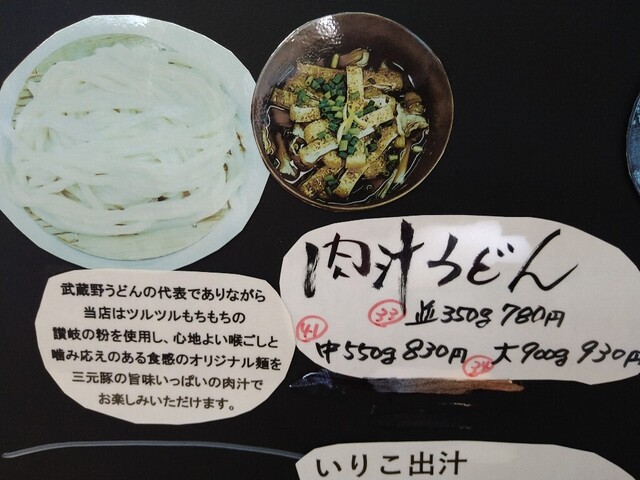 肉汁うどん
33 並350g 780円
41 中550g 830円 大900g 930円
武蔵野うどんの代表でありながら
当店はツルツルもちもちの
讃岐の粉を使用し、心地よい喉ごしと
噛み応えのある食感のオリジナル麺を
三元豚の旨味いっぱいの肉汁で
お楽しみいただけます。
いりこ出汁